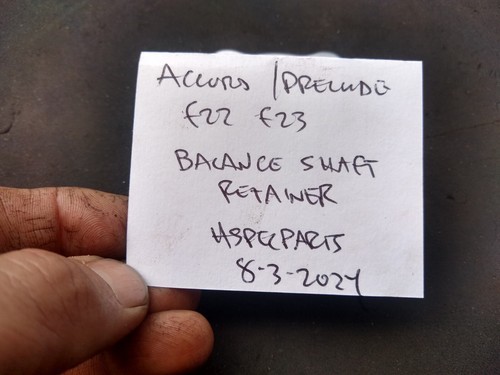 ACCORD / PRELUDE
F22 F23
BALANCE SHAFT
RETAINER
HSPECPARTS
8-3-2024